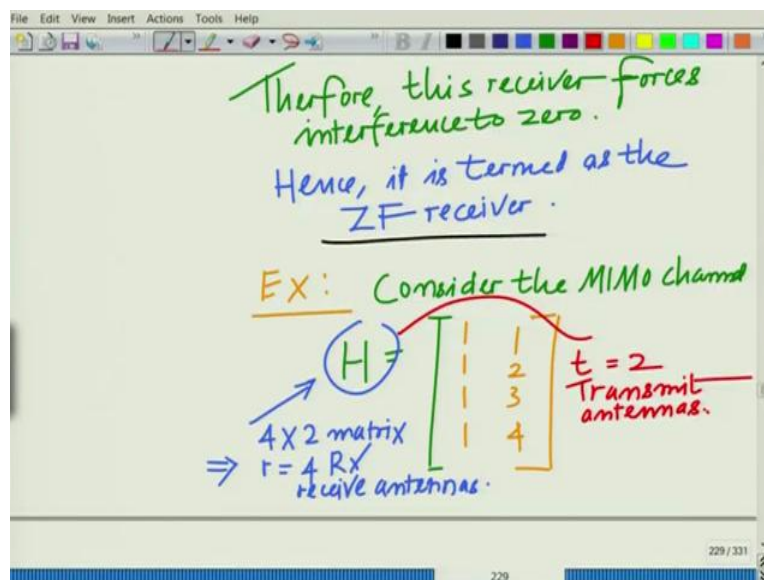 File Edit View Insert Actions Tools Help
B I
Therfore, this receiver forces
interference to zero.
Hence, it is termed as the
ZF receiver.
Ex: Consider the MIMO channel
H = [ 1 1
1 2
1 3
1 4 ]
t = 2
Transmit
antennas.
4 X 2 matrix
⇒ r = 4 Rx
receive antennas.
229 / 331
229